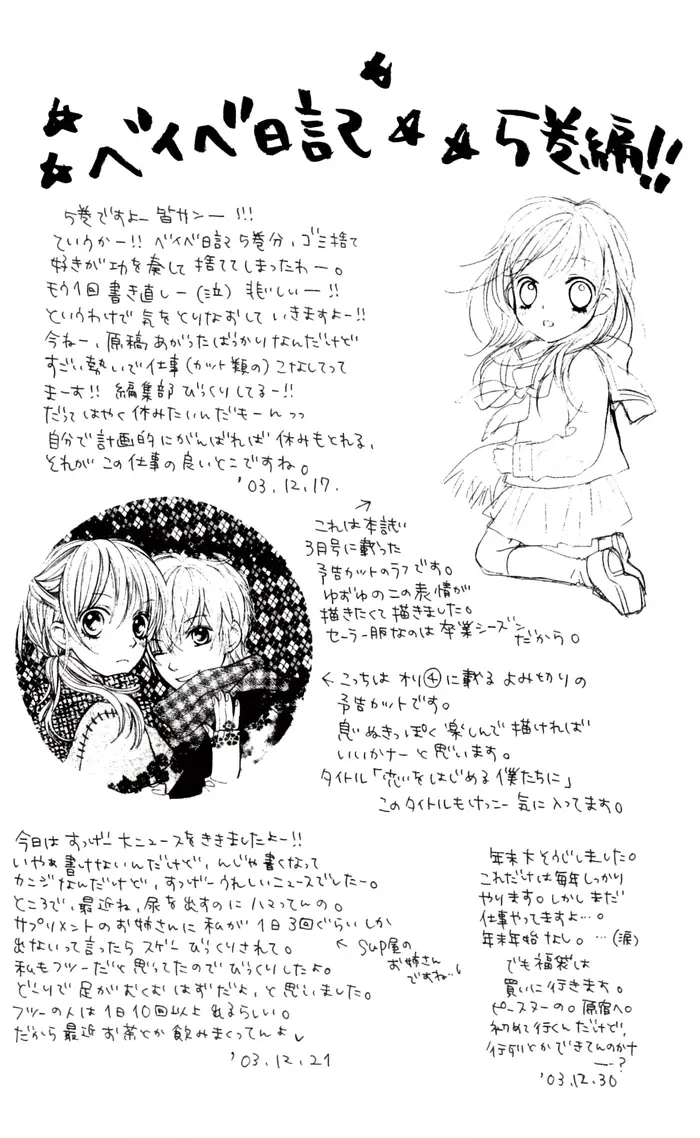 ベイベ日記 5巻編!!
5巻ですよー 皆サンー!!!
ていうかー!! ベイベ日記 5巻分、ゴミ捨て
好きが功を奏して捨ててしまったわー。
もう1回書き直しー(泣) 悲しいー!!
というわけで気をとりなおしていきますよー!!
今ねー、原稿あがったばっかりなんだけど
すごい勢いで仕事(カット類の)こなしてって
まーす!! 編集部びっくりしてるー!!
だってはやく休みたいんだもーんっっ
自分で計画的にがんばれば休みもとれる、
それがこの仕事の良いとこですね。
'03.12.17.
これは本誌
3月号に載った
予告カットのラフです。
ゆずゆのこの表情が
描きたくて描きました。
セーラー服なのは卒業シーズン
だから。
←こっちはオリ④に載るよみ切りの
予告カットです。
息ぬきっぽく楽しんで描ければ
いいかナーと思います。
タイトル「恋をはじめる僕たちに」
このタイトルもけっこー気に入ってます。
今日はすっげー大ニュースをききましたよー!!
いやぁ書けないんだけど、んじゃ書くなって
カンジなんだけど、すっげーうれしいニュースでしたー。
ところで、最近ね、尿を出すのにハマってんの。
サプリメントのお姉さんに私が1日3回ぐらいしか
出ないって言ったらスゲーびっくりされて。
← sup屋の
お姉さん
ですね…
私もフツーだと思ってたのでびっくりしたよ。
どーりで足がむくむはずだよ、と思いました。
フツーの人は1日10回以上出るらしい。
だから最近お茶とか飲みまくってんよ
'03.12.21
年末大そうじしました。
これだけは毎年しっかり
やります。しかしまだ
仕事やってますよ…。
年末年始なし。…(涙)
でも福袋は
買いに行きます。
ピースヌーの。原宿へ。
初めて行くんだけど、
行列とかできてんのかナ
ー…?
'03.12.30